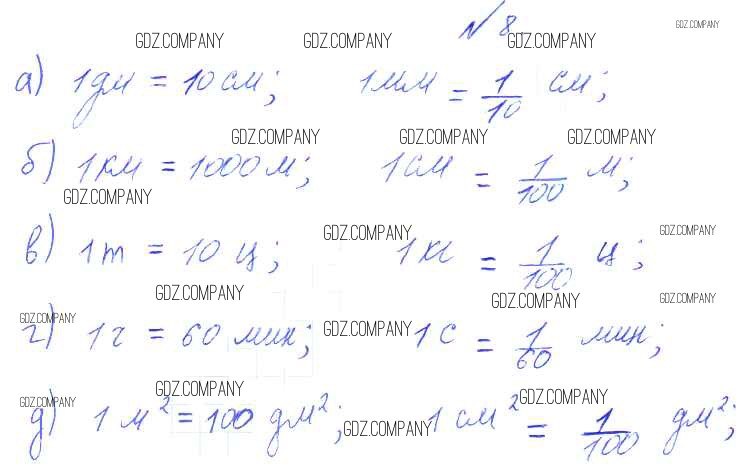 № 8. GDZ.COMPANY
GDZ.COMPANY GDZ.COMPANY GDZ.COMPANY
а) 1 дм = 10 см; 1 мм = 1/10 см;
GDZ.COMPANY GDZ.COMPANY GDZ.COMPANY
б) 1 км = 1000 м; 1 см = 1/100 м;
GDZ.COMPANY
GDZ.COMPANY GDZ.COMPANY
в) 1 т = 10 ц; 1 кг = 1/100 ц;
GDZ.COMPANY GDZ.COMPANY GDZ.COMPANY
GDZ.COMPANY GDZ.COMPANY
г) 1 г = 60 мин; 1 с = 1/60 мин;
GDZ.COMPANY GDZ.COMPANY GDZ.COMPANY
д) 1 м² = 100 дм²; 1 см² = 1/100 дм²;
GDZ.COMPANY